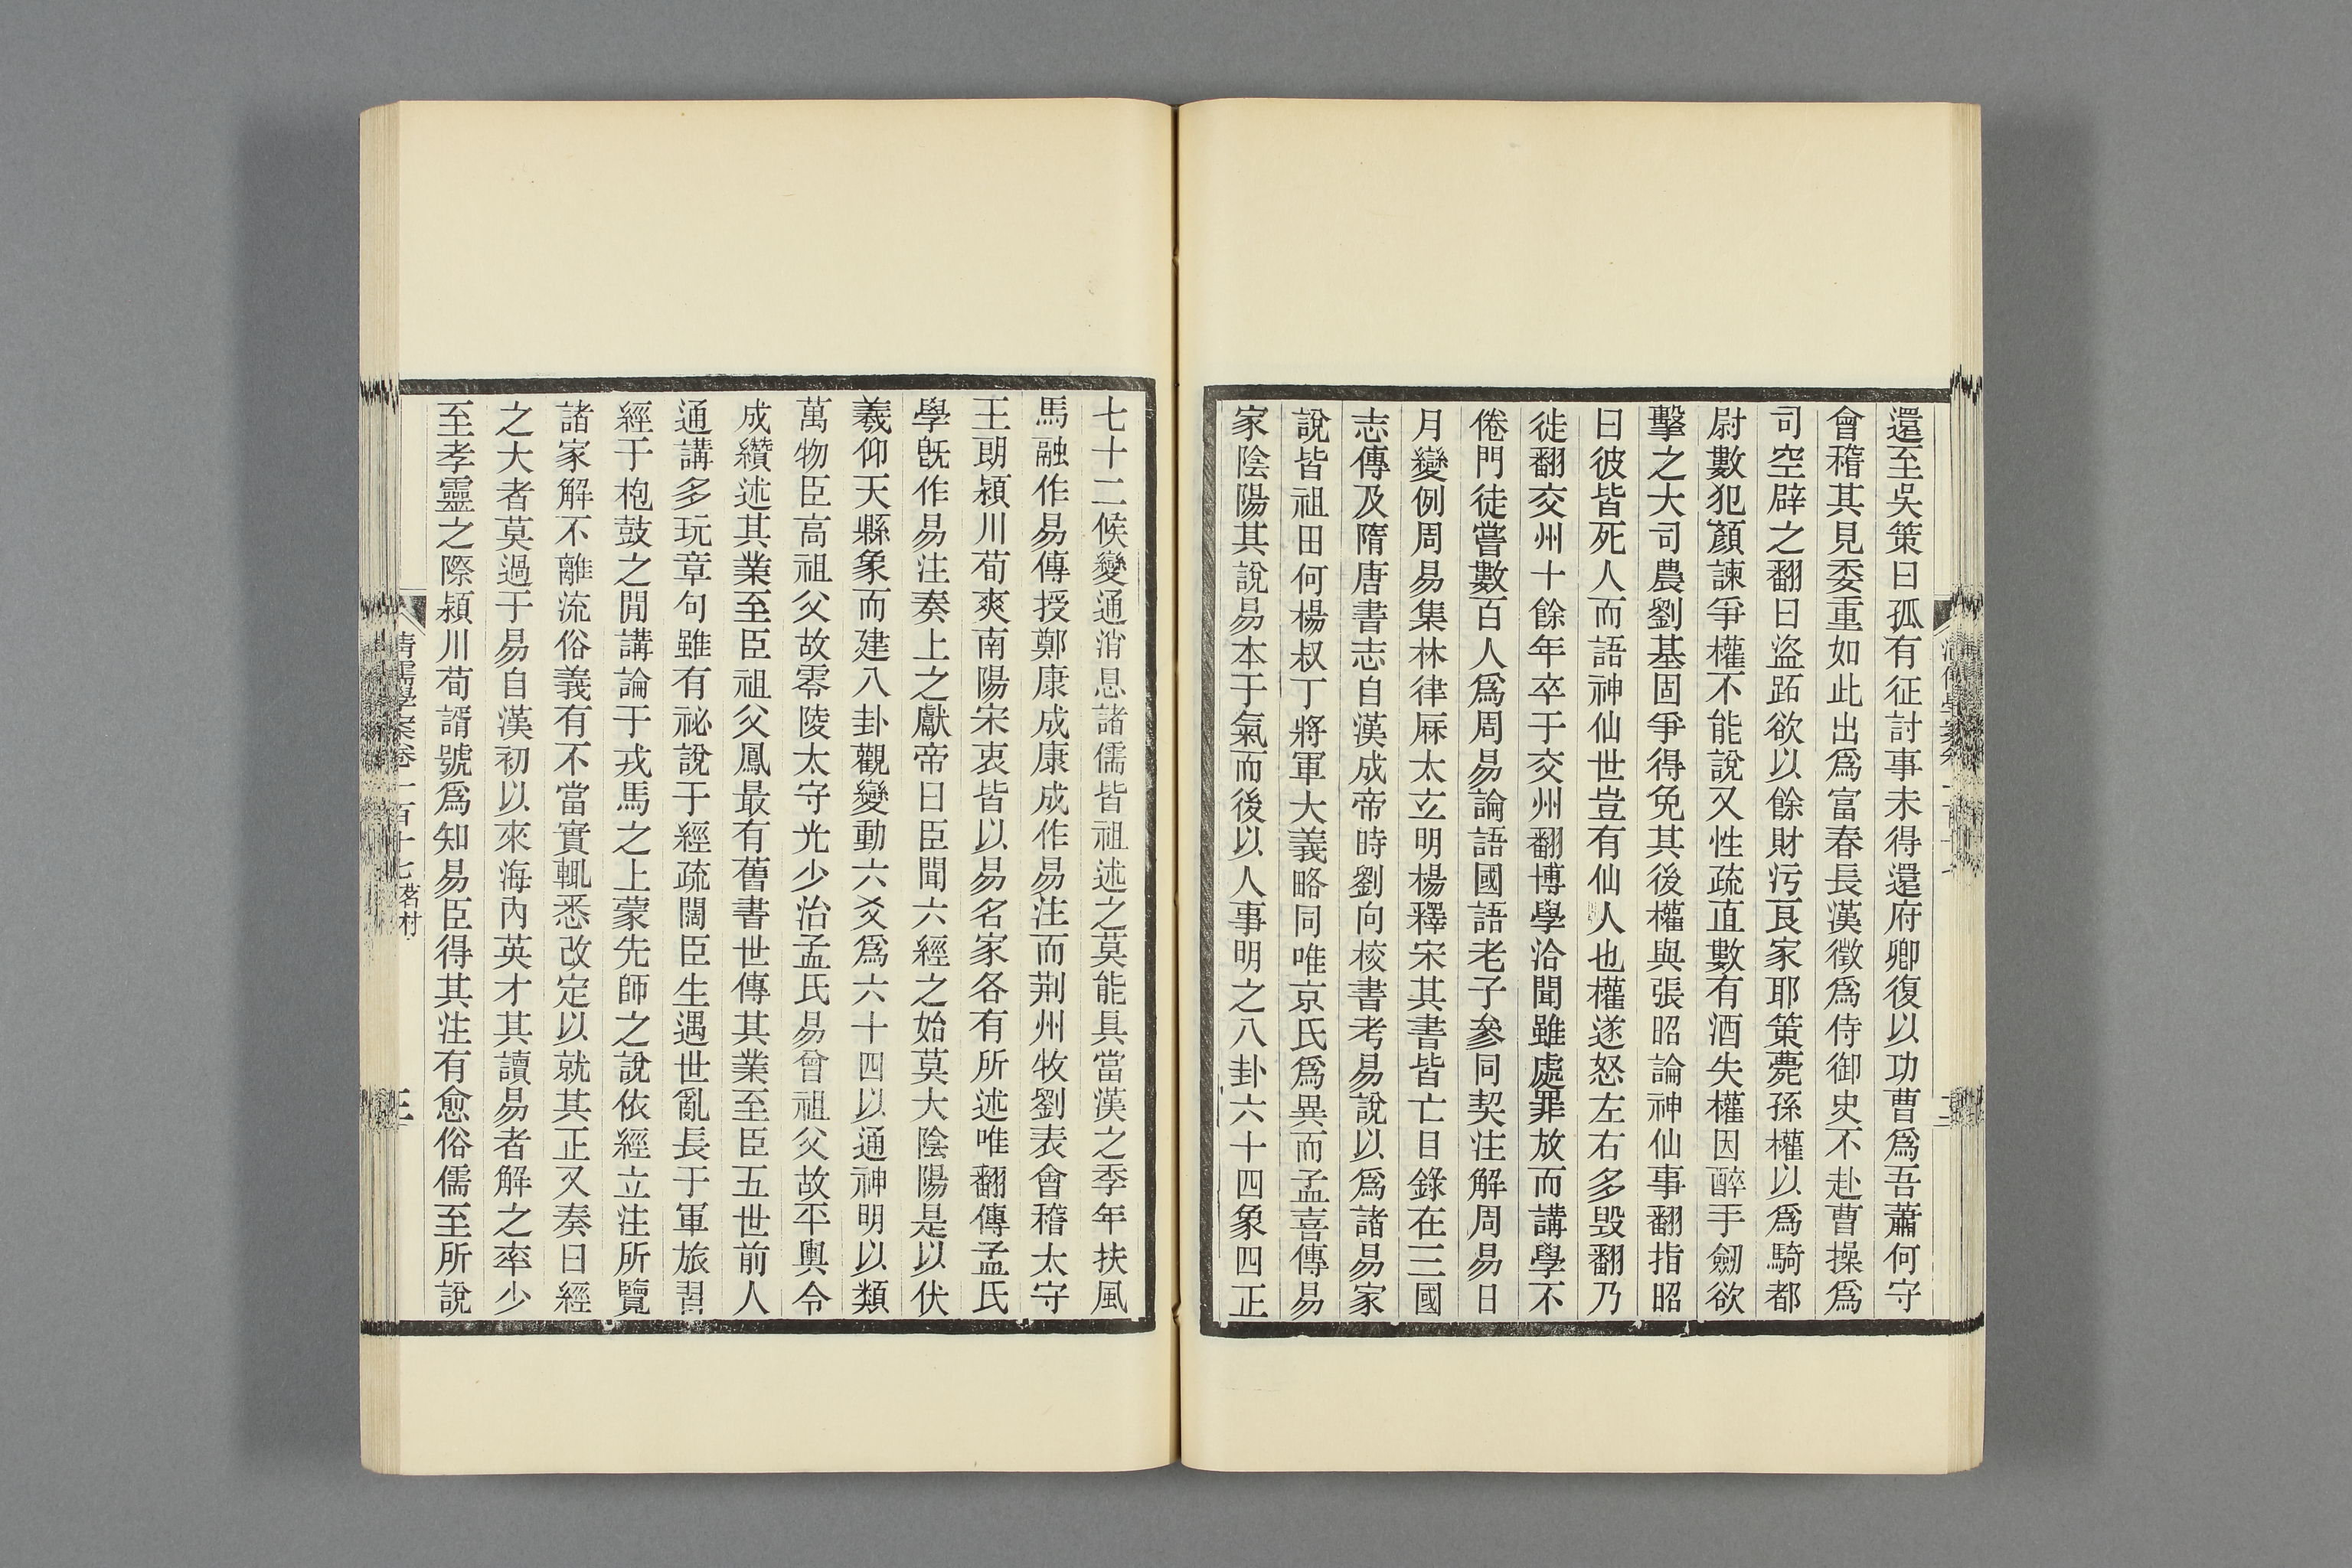 還至吳策曰孤有征討事未得還府卿復以功曹爲吾蕭何守
會稽其見委重如此出爲富春長漢徵爲侍御史不赴曹操爲
司空辟之翻曰盜跖欲以餘財汚良家耶策薨孫權以爲騎都
尉數犯顏諫爭權不能說又性疏直數有酒失權因醉手劒欲
擊之大司農劉基固爭得免其後權與張昭論神仙事翻指昭
曰彼皆死人而語神仙世豈有仙人也權遂怒左右多毀翻乃
徙翻交州十餘年卒于交州翻博學洽聞雖處罪放而講學不
倦門徒嘗數百人爲周易論語國語老子參同契注解周易日
月變例周易集林律厤太玄明楊釋宋其書皆亡目錄在三國
志傳及隋唐書志自漢成帝時劉向校書考易說以爲諸易家
說皆祖田何楊叔丁將軍大義略同唯京氏爲異而孟喜傳易
家陰陽其說易本于氣而後以人事明之八卦六十四象四正
七十二候變通消息諸儒皆祖述之莫能具當漢之季年扶風
馬融作易傳授鄭康成康成作易注而荆州牧劉表會稽太守
王朗潁川荀爽南陽宋衷皆以易名家各有所述唯翻傳孟氏
學旣作易注奏上之獻帝曰臣聞六經之始莫大陰陽是以伏
羲仰天縣象而建八卦觀變動六爻爲六十四以通神明以類
萬物臣高祖父故零陵太守光少治孟氏易曾祖父故平輿令
成纘述其業至臣祖父鳳最有舊書世傳其業至臣五世前人
通講多玩章句雖有祕說于經疏闊臣生遇世亂長于軍旅習
經于枹鼓之閒講論于戎馬之上蒙先師之說依經立注所覽
諸家解不離流俗義有不當實輒悉改定以就其正又奏曰經
之大者莫過于易自漢初以來海內英才其讀易者解之率少
至孝靈之際潁川荀諝號爲知易臣得其注有愈俗儒至所說
清儒學案卷一百十七茗村
三